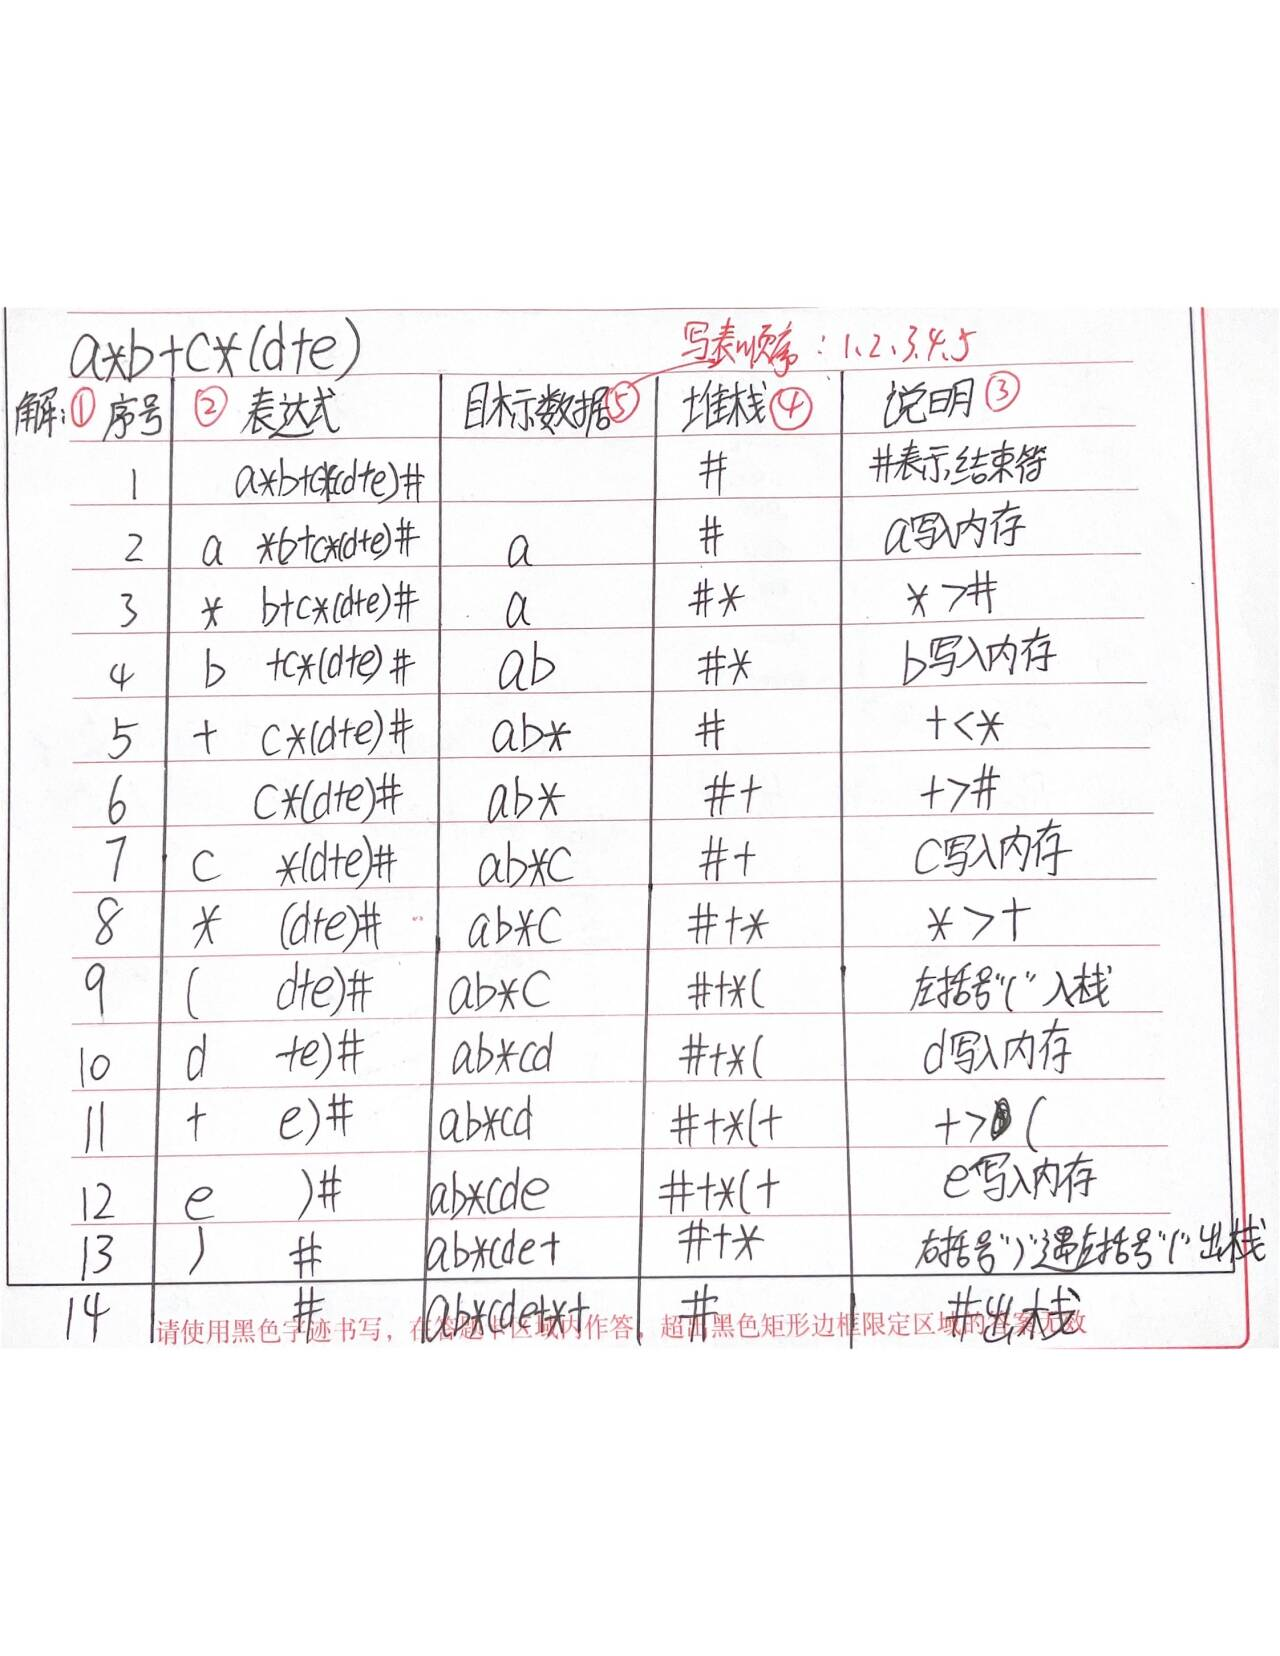 a*b+c*(d+e)
写表顺序:1、2、3、4、5
解:① 序号 ② 表达式 目标数据⑤ 堆栈④ 说明③
1 a*b+c*(d+e)# # #表示结束符
2 a *b+c*(d+e)# a # a写入内存
3 * b+c*(d+e)# a #* *>#
4 b +c*(d+e)# ab #* b写入内存
5 + c*(d+e)# ab* # +<*
6 c*(d+e)# ab* #+ +>#
7 c *(d+e)# ab*c #+ c写入内存
8 * (d+e)# ab*c #+* *>+
9 ( d+e)# ab*c #+*( 左括号“(”入栈
10 d +e)# ab*cd #+*( d写入内存
11 + e)# ab*cd #+*(+ +>(
12 e )# ab*cde #+*(+ e写入内存
13 ) # ab*cde+ #+* 右括号“)”遇左括号“(”出栈
14 # ab*cde+*+ # #出栈
请使用黑色字迹书写，在答题卡区域内作答，超出黑色矩形边框限定区域的答案无效